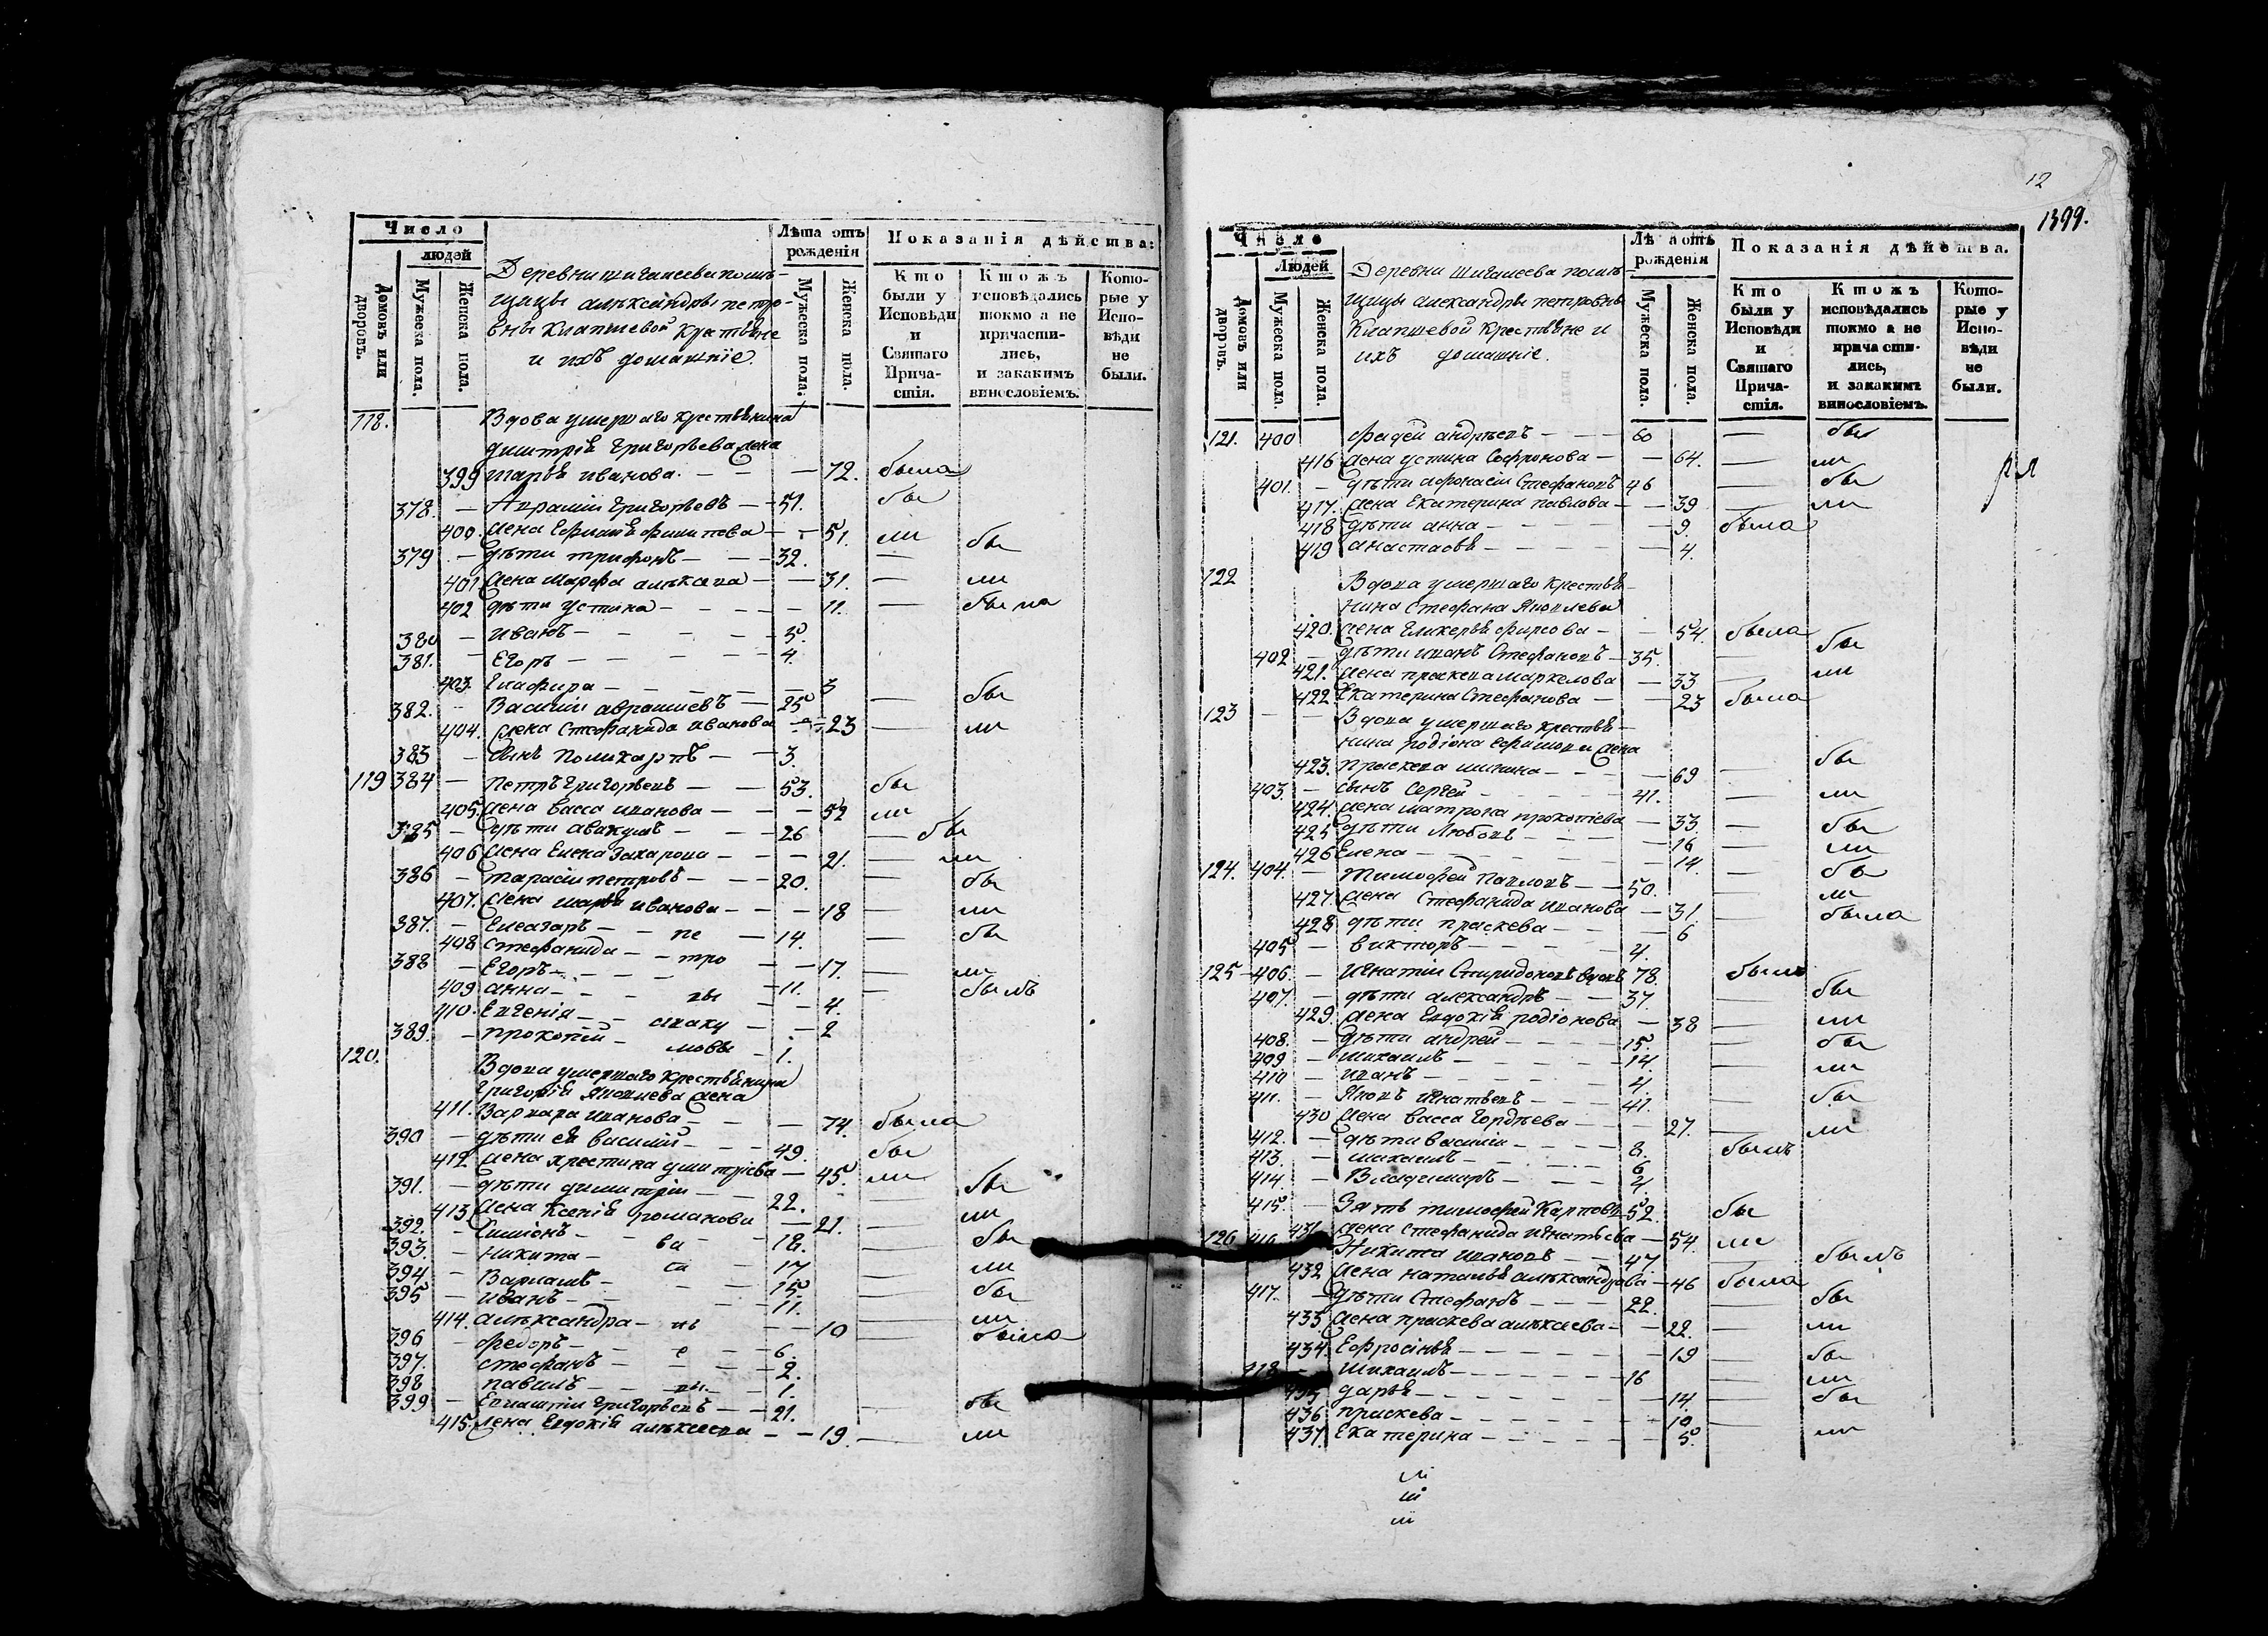 Число
людей
Домовъ или дворовъ.
Мужеска пола.
Женска пола.
Деревни шигалеевы помѣ-
щицы алѣксандры петро-
вны Клапшевой крестьяне
и ихъ домашніе.
Лѣта отъ рожденія
Мужеска пола.
Женска пола.
Показанія дѣйства:
Кто были у Исповѣди и Святаго Прича-стія.
Ктожъ исповѣдались токмо а не причасти-лись, и закакимъ винословіемъ.
Кото-рые у Испо-вѣди не были.
118. Вдова умершаго крестьянина
Димитрія Григорьева жена
399 марья иванова. — — — 72. была
378. — Аврамій Григорьевъ — 51. бы
400. жена Ефимія филипова — — 51. ли бы
379 — дѣти трифонъ — — 32. —
401 жена Марфа алѣксева — — 31. — ли
402 дѣти устина — — — — 11. — была
380 — иванъ — — — — 5.
381. — Егоръ — — — — 4.
403. Глафира — — — — 3
382. — Василій аврамиевъ — 25 — бы
404. жена Стефанида иванова — 23 — ли
383 — сынъ Поликарпъ — — 3.
119 384 — Петръ Григорьевъ — — 53. бы
405. жена васса иванова — — — 52 ли
385 — дѣти авакумъ — — 26 — бы
406 жена Елена Захарова — — — 21. — ли
386 — тарасій петровъ — — 20. — бы
407. жена марья иванова — — — 18 — ли
387. — Елеазаръ — — пе — 14. — бы
408 стефанида — — тро — — 17. — ли
388 — Егоръ — — — — 11. — былъ
409 анна — — — вы — — 4.
410. Евгенія — — аваку — — 2
389. — прокопій — мовы — 1.
120. Вдова умершаго крестьянина
Григорія Яковлева жена
411. Варвара иванова — — — 74. была
390 — дѣти ея василий — — 49. бы
412 жена христина димитріева — 45. ли бы
391. — дѣти димитрій — — 22. —
413 жена Ксенія романова — 21. — ли
392. — Симіонъ — — ва — 18. — бы
393. — никита — си — 17 — ли
394 — Варламъ — — — 15 — бы
395 — иванъ — — — 11. — ли
414. алѣксандра — ль — — 10 — была
396 — федоръ — — е — 6.
397. стефанъ — — — — 2.
398 павилъ — — вы. — 1.
399 — Евлампій Григорьевъ — — 21. — бы
415. жена Евдокія алѣксеева — — 19. — ли
12
1399.
Число
Людей
Домовъ или дворовъ.
Мужеска пола.
Женска пола.
Деревни Шигалеева помѣ-
щицы александры петровны
Клапшевой крестьяне и
ихъ домашніе.
Лѣта отъ рожденія
Мужеска пола.
Женска пола.
Показанія дѣйства.
Кто были у Исповѣди и Святаго Прича-стія.
Ктожъ исповѣдались токмо а не прича сти-лись, и закакимъ винословіемъ.
Кото-рые у Испо-вѣди не были.
121. 400 фадей андрѣевъ — — — 60 — бы
416 жена устина Софронова — — 64. — ли
ря
401. — дѣти афонасій Стефановъ 46 — бы
417. жена Екатерина павлова — — 39 — ли
418 дѣти анна — — — — 9. была
419 анастасія — — — — — 4.
122 Вдова умершаго крестья-
нина Стефана Яковлева
420. жена гликерья фирсова — — 54. была
402 — дѣти иванъ Стефановъ — 35. — бы
421. жена праскева маркелова — 33 — ли
422 Екатерина Стефанова — — 23 была
123 — — Вдова умершаго крестья-
нина родіона ефимова жена
423. праскева минина — — — — 69 — бы
403. — сынъ Сергей — — — — 41. — ли
424. жена матрона прокопіева — 33. — бы
425 дѣти Любовь — — — — 16 — ли
426 Елена — — — — — — 14. — бы
124. 404. — тимофей Павловъ — — 50. — ли
427. жена Стефанида иванова — 31. — была
428 дѣти праскева — — — 6
405 — викторъ — — — — 4.
125 — 406. — игнатій Спиридоновъ вдовъ 78. былъ
407. — дѣти александръ — — 37 — бы
429. жена Евдокія родіонова — 38 — ли
408. — дѣти андрей — — — — 15. — бы
409 — михаилъ — — — — 14. — ли
410 — иванъ — — — — — 4.
411. — Яковъ игнатьевъ — — — 41. — бы
430 жена васса гордѣева — — 27. — ли
412. — дѣти василій — — — — 8. былъ
413. — михаилъ — — — — 6
414. — Владимиръ — — — 4.
415. — Зять тимофей Карповъ 52. бы
431. жена стефанида игнатьева — 54. ли
126 416 Никита ивановъ — — 47 — былъ
432 жена наталья алѣксандрова — 46 была
417. — дѣти Стефанъ — — — 22. — бы
433 жена праскева алѣксиева — — 22. — ли
434. Ефросінья — — — — — 19 — бы
418 — Михаилъ — — — — — 16 — ли
435 дарья — — — — — — 14. — бы
436 праскева — — — — — — 10 —
437. Екатерина — — — — — 5. ли